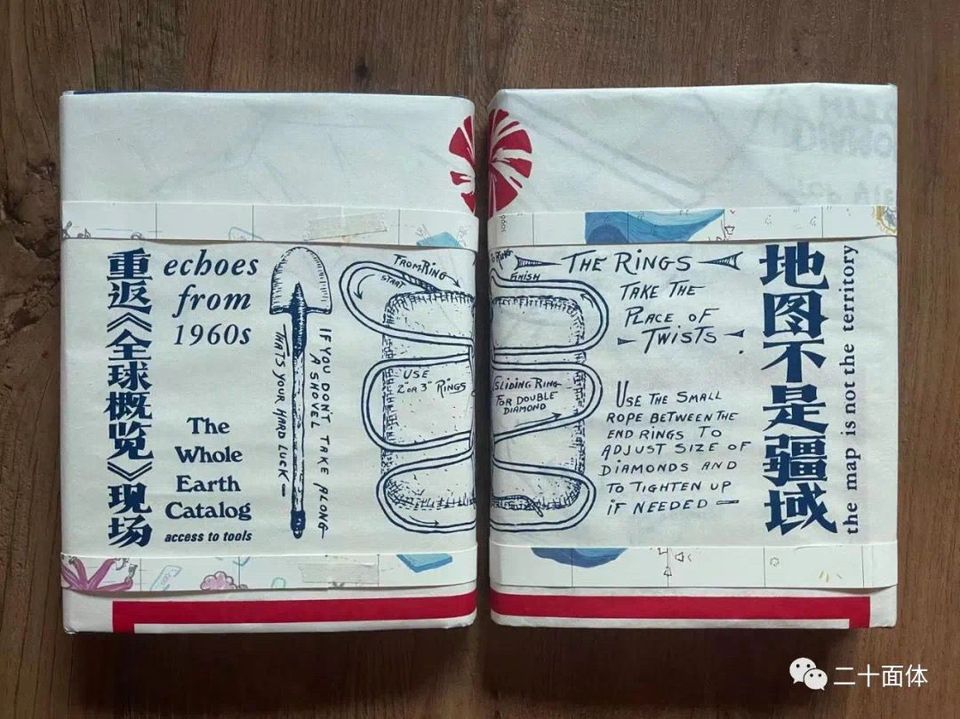 重返《全球概览》现场
echoes
from
1960s
The
Whole
Earth
Catalog
access to tools
IF YOU DON'T TAKE ALONG
A SHOVEL
THATS YOUR HARD LUCK —
FROM RING
START
USE
2" OR 3" RINGS
TO RING
FINISH
SLIDING RING
FOR DOUBLE
DIAMOND
THE RINGS
TAKE THE
PLACE OF
TWISTS
USE THE SMALL
ROPE BETWEEN THE
END RINGS TO
ADJUST SIZE OF
DIAMONDS AND
TO TIGHTEN UP
IF NEEDED —
地图不是疆域
the map is not the territory
二十面体